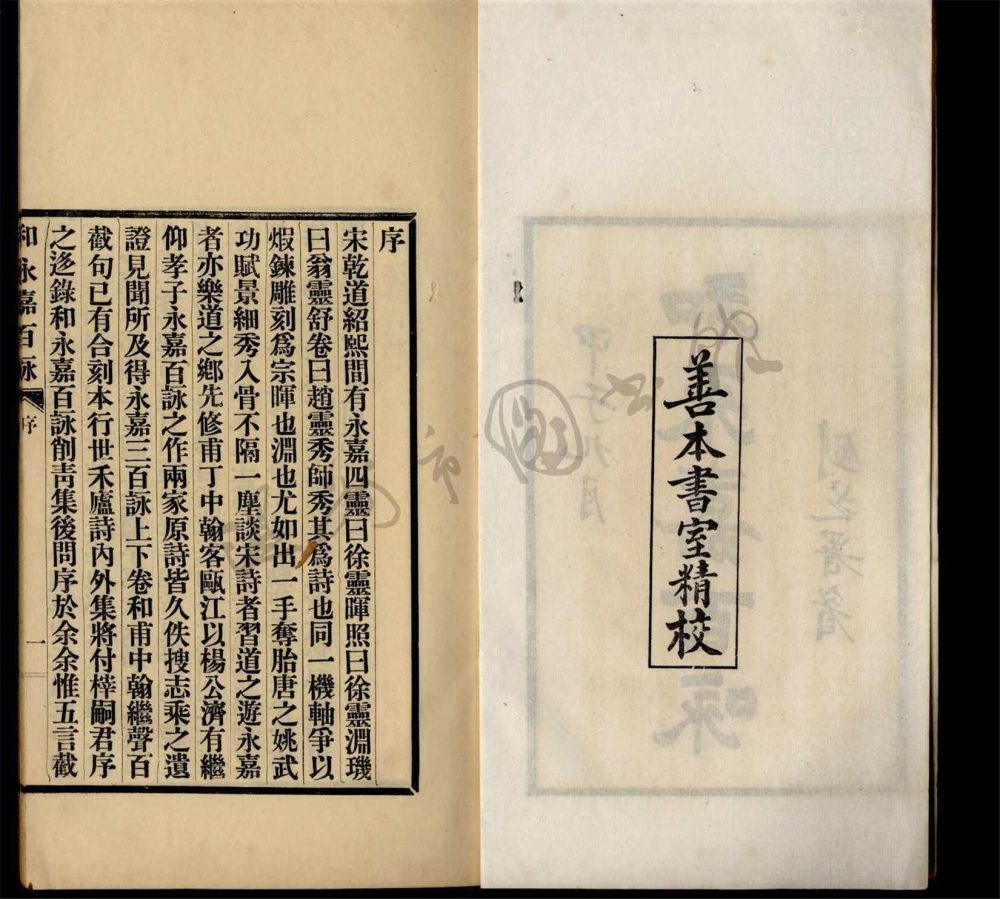 善本書室精校
序
宋乾道紹熙間有永嘉四靈曰徐靈暉照曰徐靈淵璣
曰翁靈舒卷曰趙靈秀師秀其爲詩也同一機軸爭以
煆鍊雕刻爲宗暉也淵也尤如出一手奪胎唐之姚武
功賦景細秀入骨不隔一塵談宋詩者習道之遊永嘉
者亦樂道之鄉先修甫丁中翰客甌江以楊公濟有繼
仰孝子永嘉百詠之作兩家原詩皆久佚搜志乘之遺
證見聞所及得永嘉三百詠上下卷和甫中翰繼聲百
截句已有合刻本行世禾廬詩內外集將付梓嗣君序
之迻錄和永嘉百詠削靑集後問序於余余惟五言截
和永嘉百詠 序 一